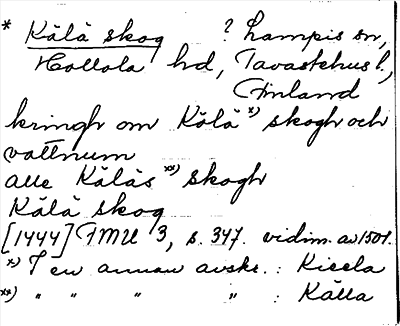 * Kälä skog ? Lampis sn,
Hollola hd, Tavastehus l.,
Finland
kringh om Kälä *) skogh och
vattnum
alle Käläs **) skogh
Kälä skog
[1444] FMU 3, s. 347. vidim. av 1501.
*) I en annan avskr. : Kieela
**) " " " " : Källa